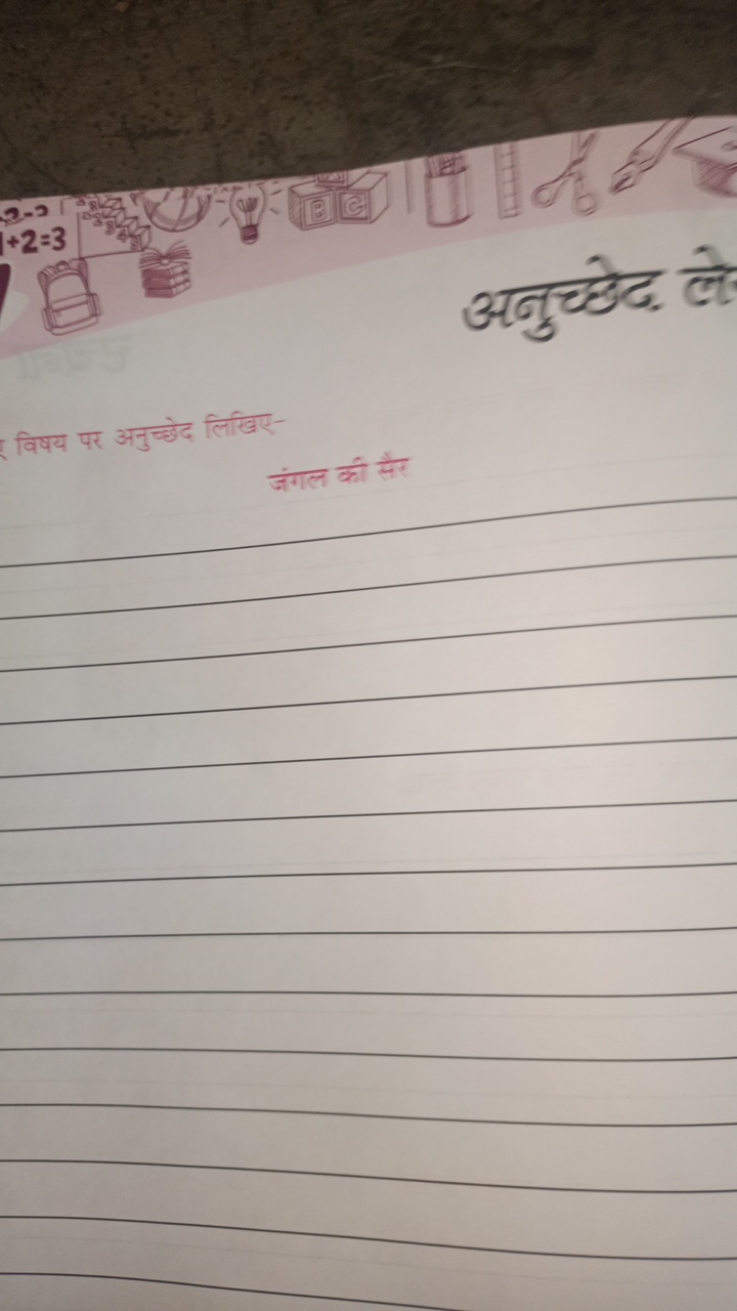 1+2=3
B C
अनुच्छेद ले
विषय पर अनुच्छेद लिखिए-
जंगल की सैर